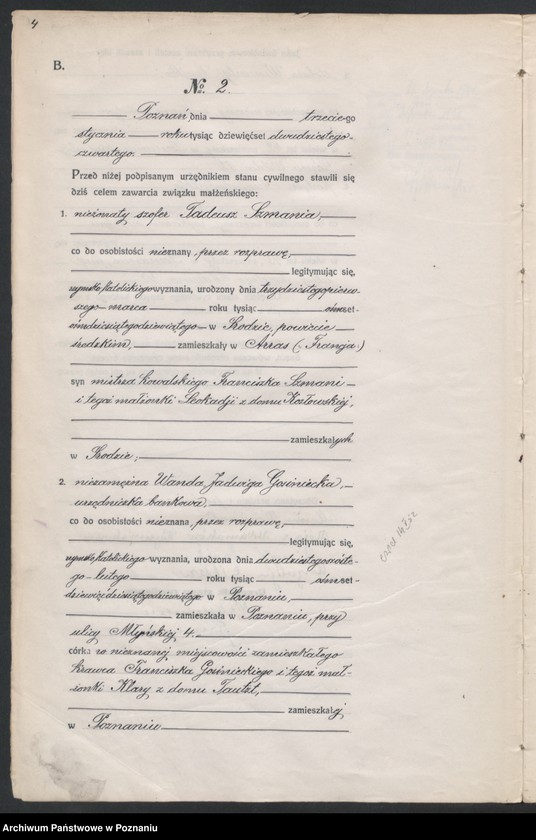 4
B.
№. 2.
Poznań, dnia trzeciego
stycznia roku tysiąc dziewięćset dwudziestego-
czwartego.
Przed niżej podpisanym urzędnikiem stanu cywilnego stawili się
dziś celem zawarcia związku małżeńskiego:
1. nieżonaty szofer Tadeusz Szmania,
co do osobistości nieznany, przez rozprawę,
legitymując się,
rzymsko katolickiego wyznania, urodzony dnia trzydziestegopierw-
szego marca roku tysiąc ośmset-
ośmdziesiątegodziewiątego w Środzie, powiecie
średzkim, zamieszkały w Arras (Francja)
syn mistrza kowalskiego Franciszka Szmani
i tegoż małżonki Leokadji z domu Kozłowskiej,
zamieszkałych
w Środzie;
2. niezamężna Wanda Jadwiga Gośniecka,
urzędniczka bankowa,
co do osobistości nieznana, przez rozprawę,
legitymując się,
rzymsko katolickiego wyznania, urodzona dnia dwudziestegowtó-
go lutego roku tysiąc ośmset-
dziewięćdziesiątegodziewiątego w Poznaniu,
zamieszkała w Poznaniu, przy
ulicy Młyńskiej 4.
córka w nieznanej miejscowości zamieszkałego
krawca Franciszka Gośnieckiego i tegoż mał-
żonki Klary z domu Tautzt,
zamieszkałej
w Poznaniu
Archiwum Państwowe w Poznaniu